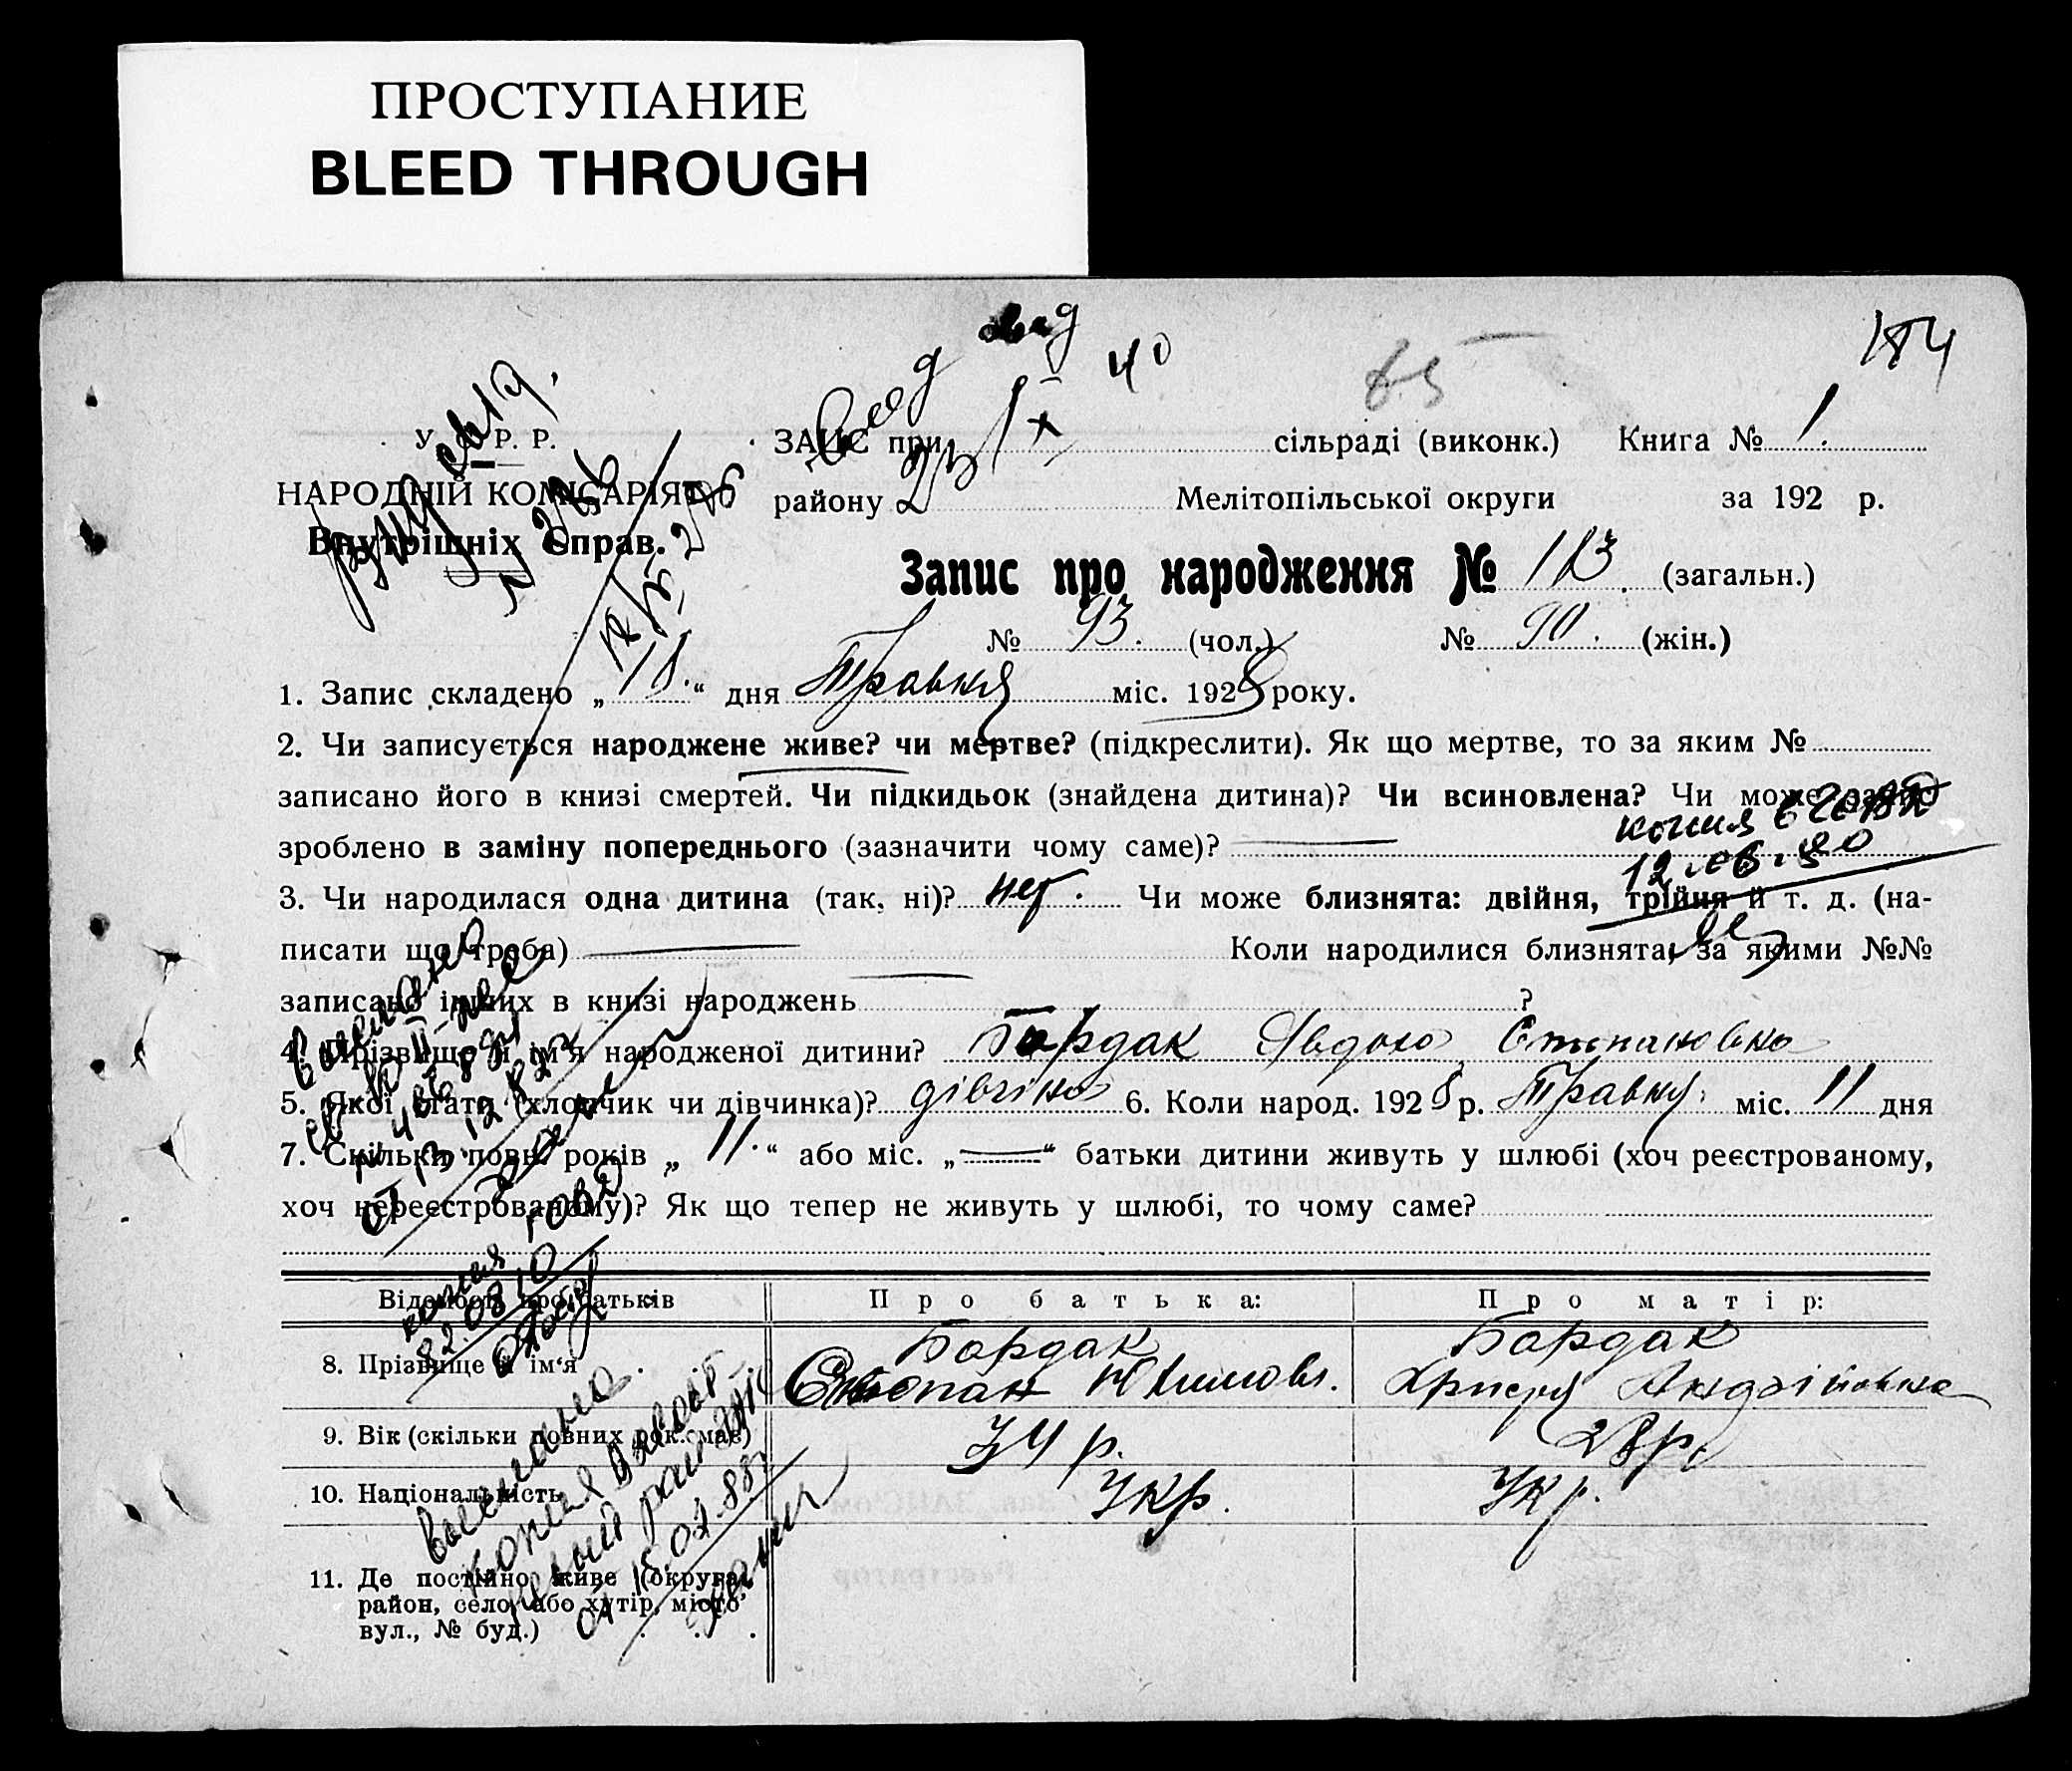 ПРОСТУПАНИЕ
BLEED THROUGH
184
40
65
У. С. Р. Р.
НАРОДНІЙ КОМІСАРІЯТ
Внутрішніх Справ.
ЗАГС при сільраді (виконк.) Книга № 1.
району Мелітопільської округи за 192 р.
Запис про народження № 183 (загальн.)
№ 93. (чол.) № 90. (жін.)
1. Запис складено „ 18. “ дня Травня міс. 1928 року.
2. Чи записується народжене живе? чи мертве? (підкреслити). Як що мертве, то за яким №
записано його в книзі смертей. Чи підкидьок (знайдена дитина)? Чи всиновлена? Чи може запис
зроблено в заміну попереднього (зазначити чому саме)?
копия
3. Чи народилася одна дитина (так, ні)? Чи може близнята: двійня, трійня й т. д. (на-
писати що треба) Коли народилися близнята, за якими №№
записано інших в книзі народжень ?
4. Прізвище й ім'я народженої дитини? Бардак Явдоха Степановна
5. Якої статі (хлопчик чи дівчинка)? дівчіна 6. Коли народ. 1928 р. Травня міс. 11 дня
7. Скільки повн. років „ 11. “ або міс. „ “ батьки дитини живуть у шлюбі (хоч реєстрованому,
хоч нереєстрованому)? Як що тепер не живуть у шлюбі, то чому саме?
Відомості про батьків Про батька: Про матір:
8. Прізвище й ім'я Бардак Бардак
Степан Юхимовч. Христя Андрійовна
9. Вік (скільки повних рок. має) 34 р. 28 р.
10. Національність Укр. Укр.
11. Де постійно живе (округа,
район, село, або хутір, місто,
вул., № буд.)
выслана
копия